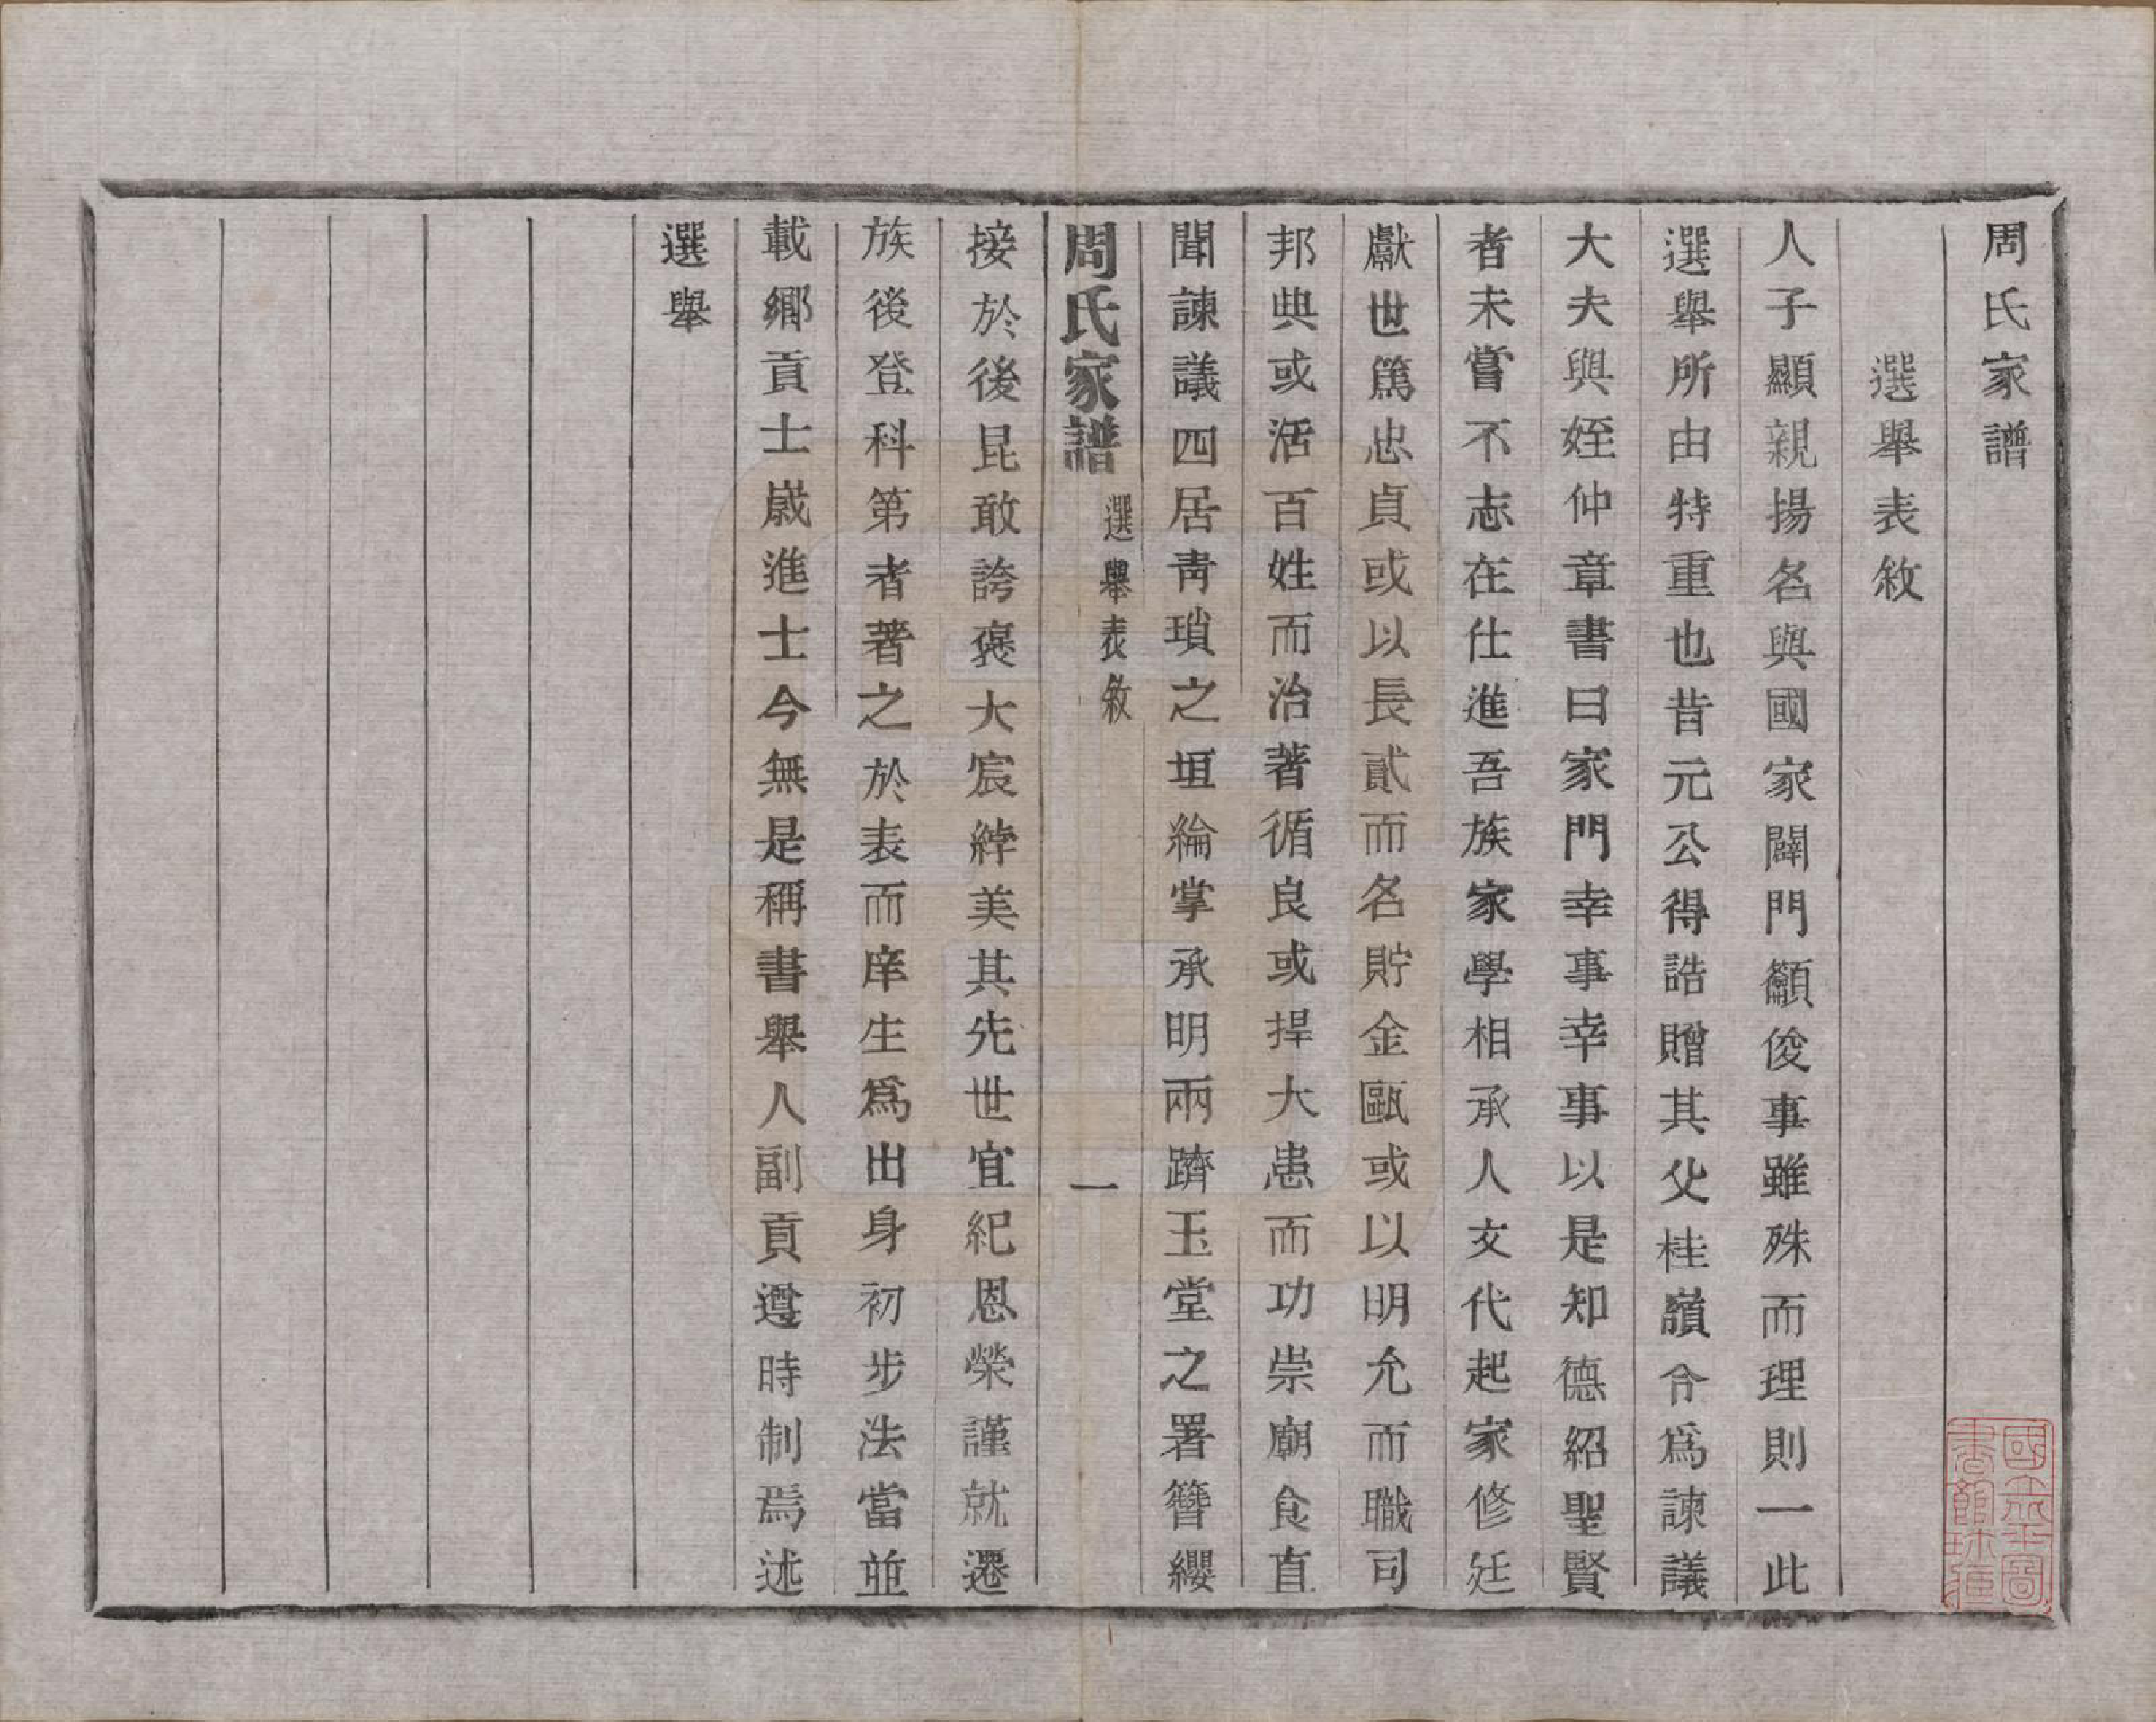 周氏家譜
選舉表敘
人子顯親揚名與國家闢門籲俊事雖殊而理則一此
選舉所由特重也昔元公得誥贈其父桂嶺令爲諫議
大夫與姪仲章書曰家門幸事幸事以是知德紹聖賢
者未嘗不志在仕進吾族家學相承人文代起家修廷
獻世篤忠貞或以長貳而名貯金甌或以明允而職司
邦典或活百姓而治著循良或捍大患而功崇廟食直
聞諫議四居靑瑣之垣綸掌承明兩躋玉堂之署簪纓
周氏家譜 選舉表敘 一
接於後昆敢誇褒大宸綍美其先世宜紀恩榮謹就遷
族後登科第者著之於表而庠生爲出身初步法當並
載鄉貢士歲進士今無是稱書舉人副貢遵時制焉述
選舉
國立北平圖
書館珍藏